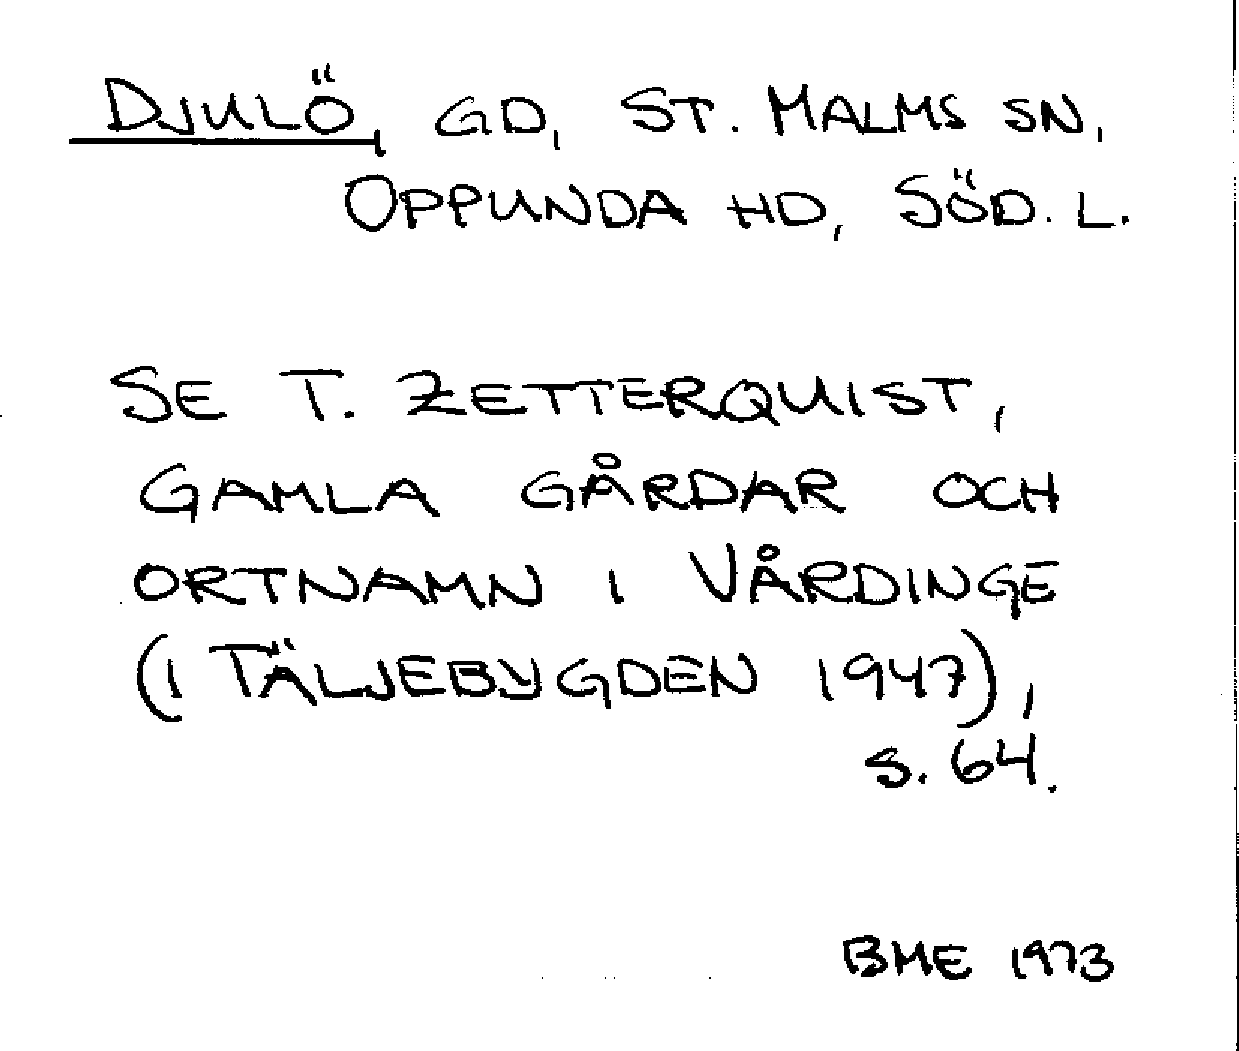 DJULÖ, GD, ST. MALMS SN,
OPPUNDA HD, SÖD. L.
SE T. ZETTERQUIST,
GAMLA GÅRDAR OCH
ORTNAMN I VÅRDINGE
(I TÄLJEBYGDEN 1947),
S. 64.
BME 1973